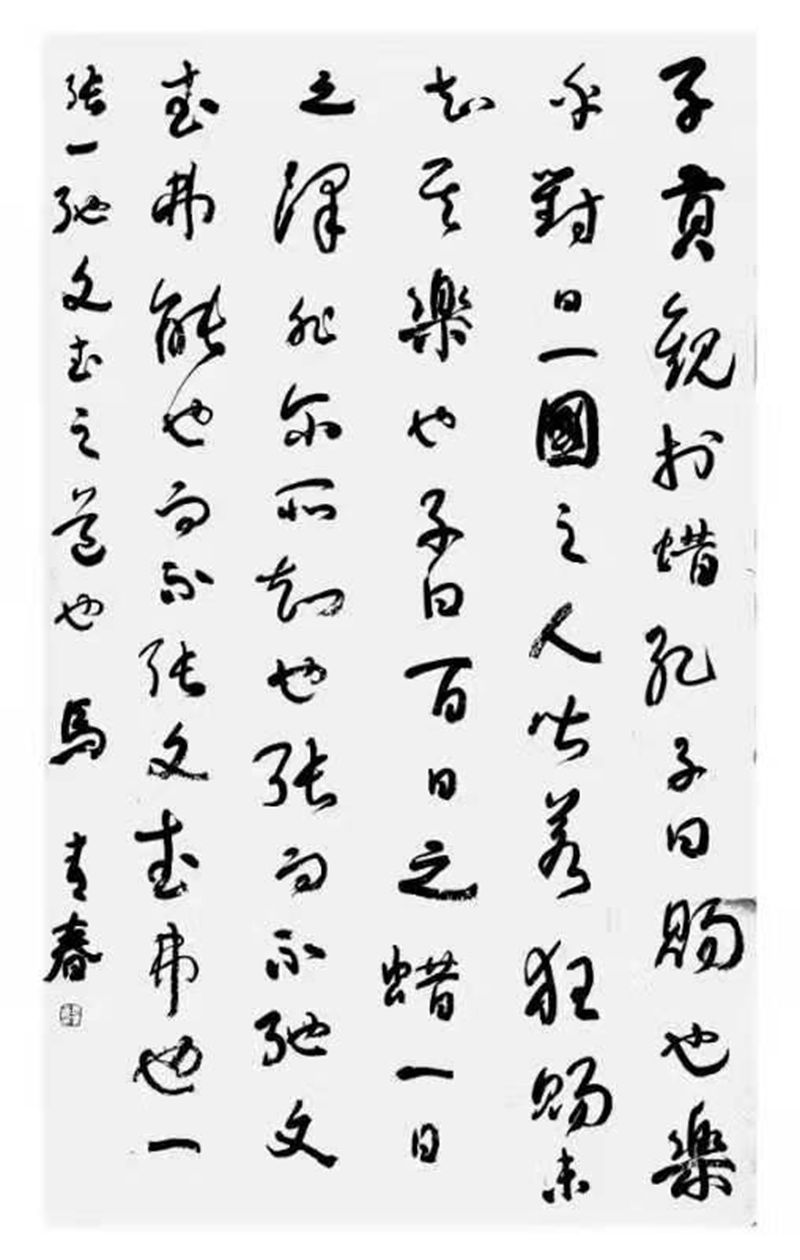 子貢觀於蜡孔子曰賜也樂
乎對曰一國之人皆若狂賜未
知其樂也子曰百日之蜡一日
之澤非尔所知也張而不弛文
武弗能也而不張文武弗也一
張一弛文武之道也 馬青春